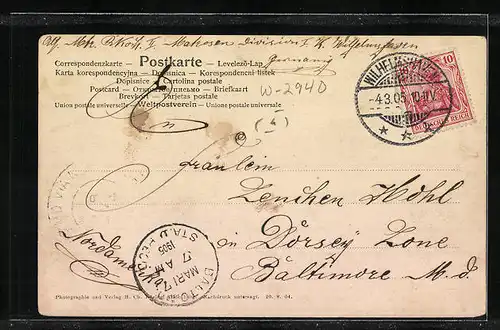 Abs. Mtr. II. Matrosen Division I. K. Wilhelmshaven
Germany
Correspondenzkarte — Postkarte — Levelező-Lap
Karta korespondencyjna — Dopisnica — Korespondenčni listek
Dopisnice — Cartolina postale
Postcard — Открытое письмо — Briefkaart
Brevkort — Tarjetas postales
Union postale universelle Weltpostverein — Unione postale universale
W-2940
An
WILHELMSHAVEN
-4.3.05. 10-11V.
10
DEUTSCHES REICH
Fräulein
Lenchen Hohl
in Dorsey Lone
Baltimore M. d.
Nordamerika
BALTO.
MAR 17
7 AM
1905
STA. D. REC'D
Photographie und Verlag B. Ch. Nachdruck untersagt. 20. 8. 04.